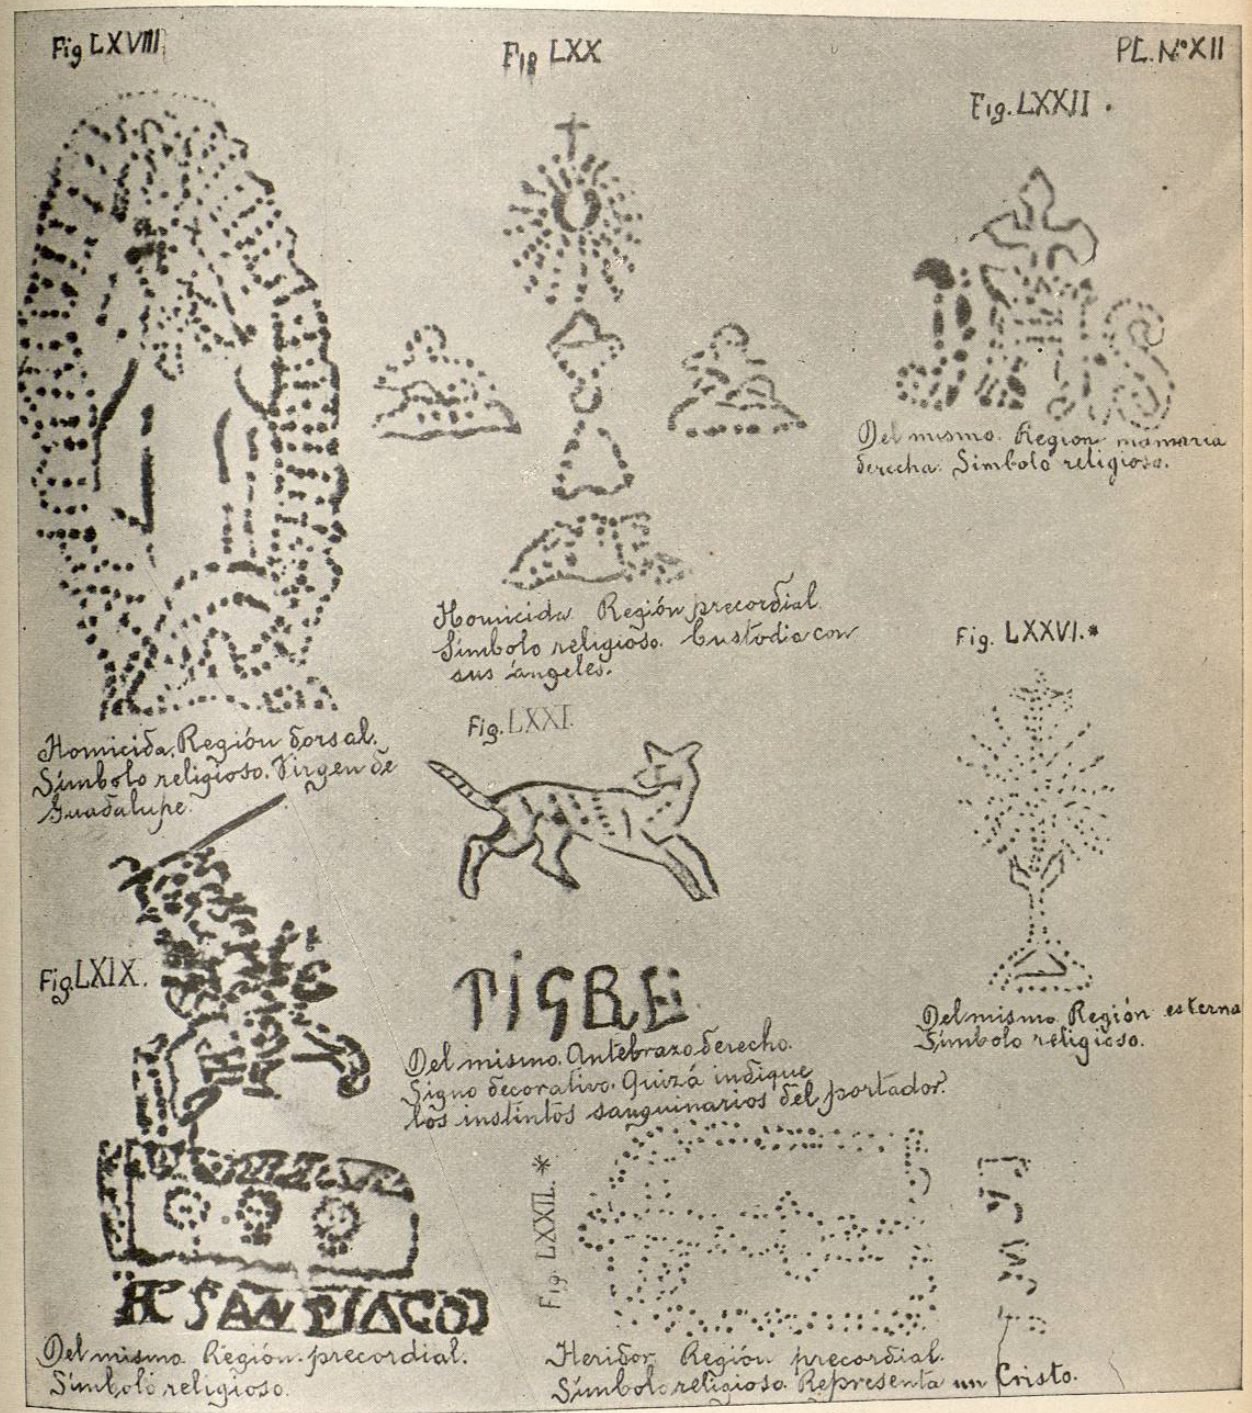 Fig LXVIII
Fig LXX
PL. Nº XII
Fig. LXXII.
Del mismo. Región mamaria
derecha. Símbolo religioso.
Homicida Región precordial
Símbolo religioso. Custodia con
sus ángeles.
Fig. LXXVI.*
Fig. LXXI.
Homicida. Región dorsal.
Símbolo religioso. Virgen de
Guadalupe.
Fig. LXIX.
TIGRE
Del mismo. Región esterna
Símbolo religioso.
Del mismo. Antebrazo derecho.
Signo decorativo. Quizá indique
los instintos sanguinarios del portador.
Fig. LXXII.*
SANTIAGO
Del mismo Región precordial.
Símbolo religioso.
Heridor Región precordial.
Símbolo religioso Representa un Cristo.